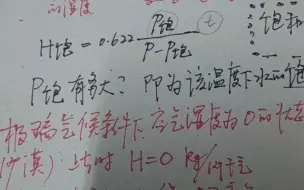 的温度
H饱 = 0.622 P饱 / P-P饱 (t) 饱和
P饱有多大? 即为该温度下水的饱
极端气候条件下空气湿度为0的状态
沙漠) 此时 H=0 kg/kg干气